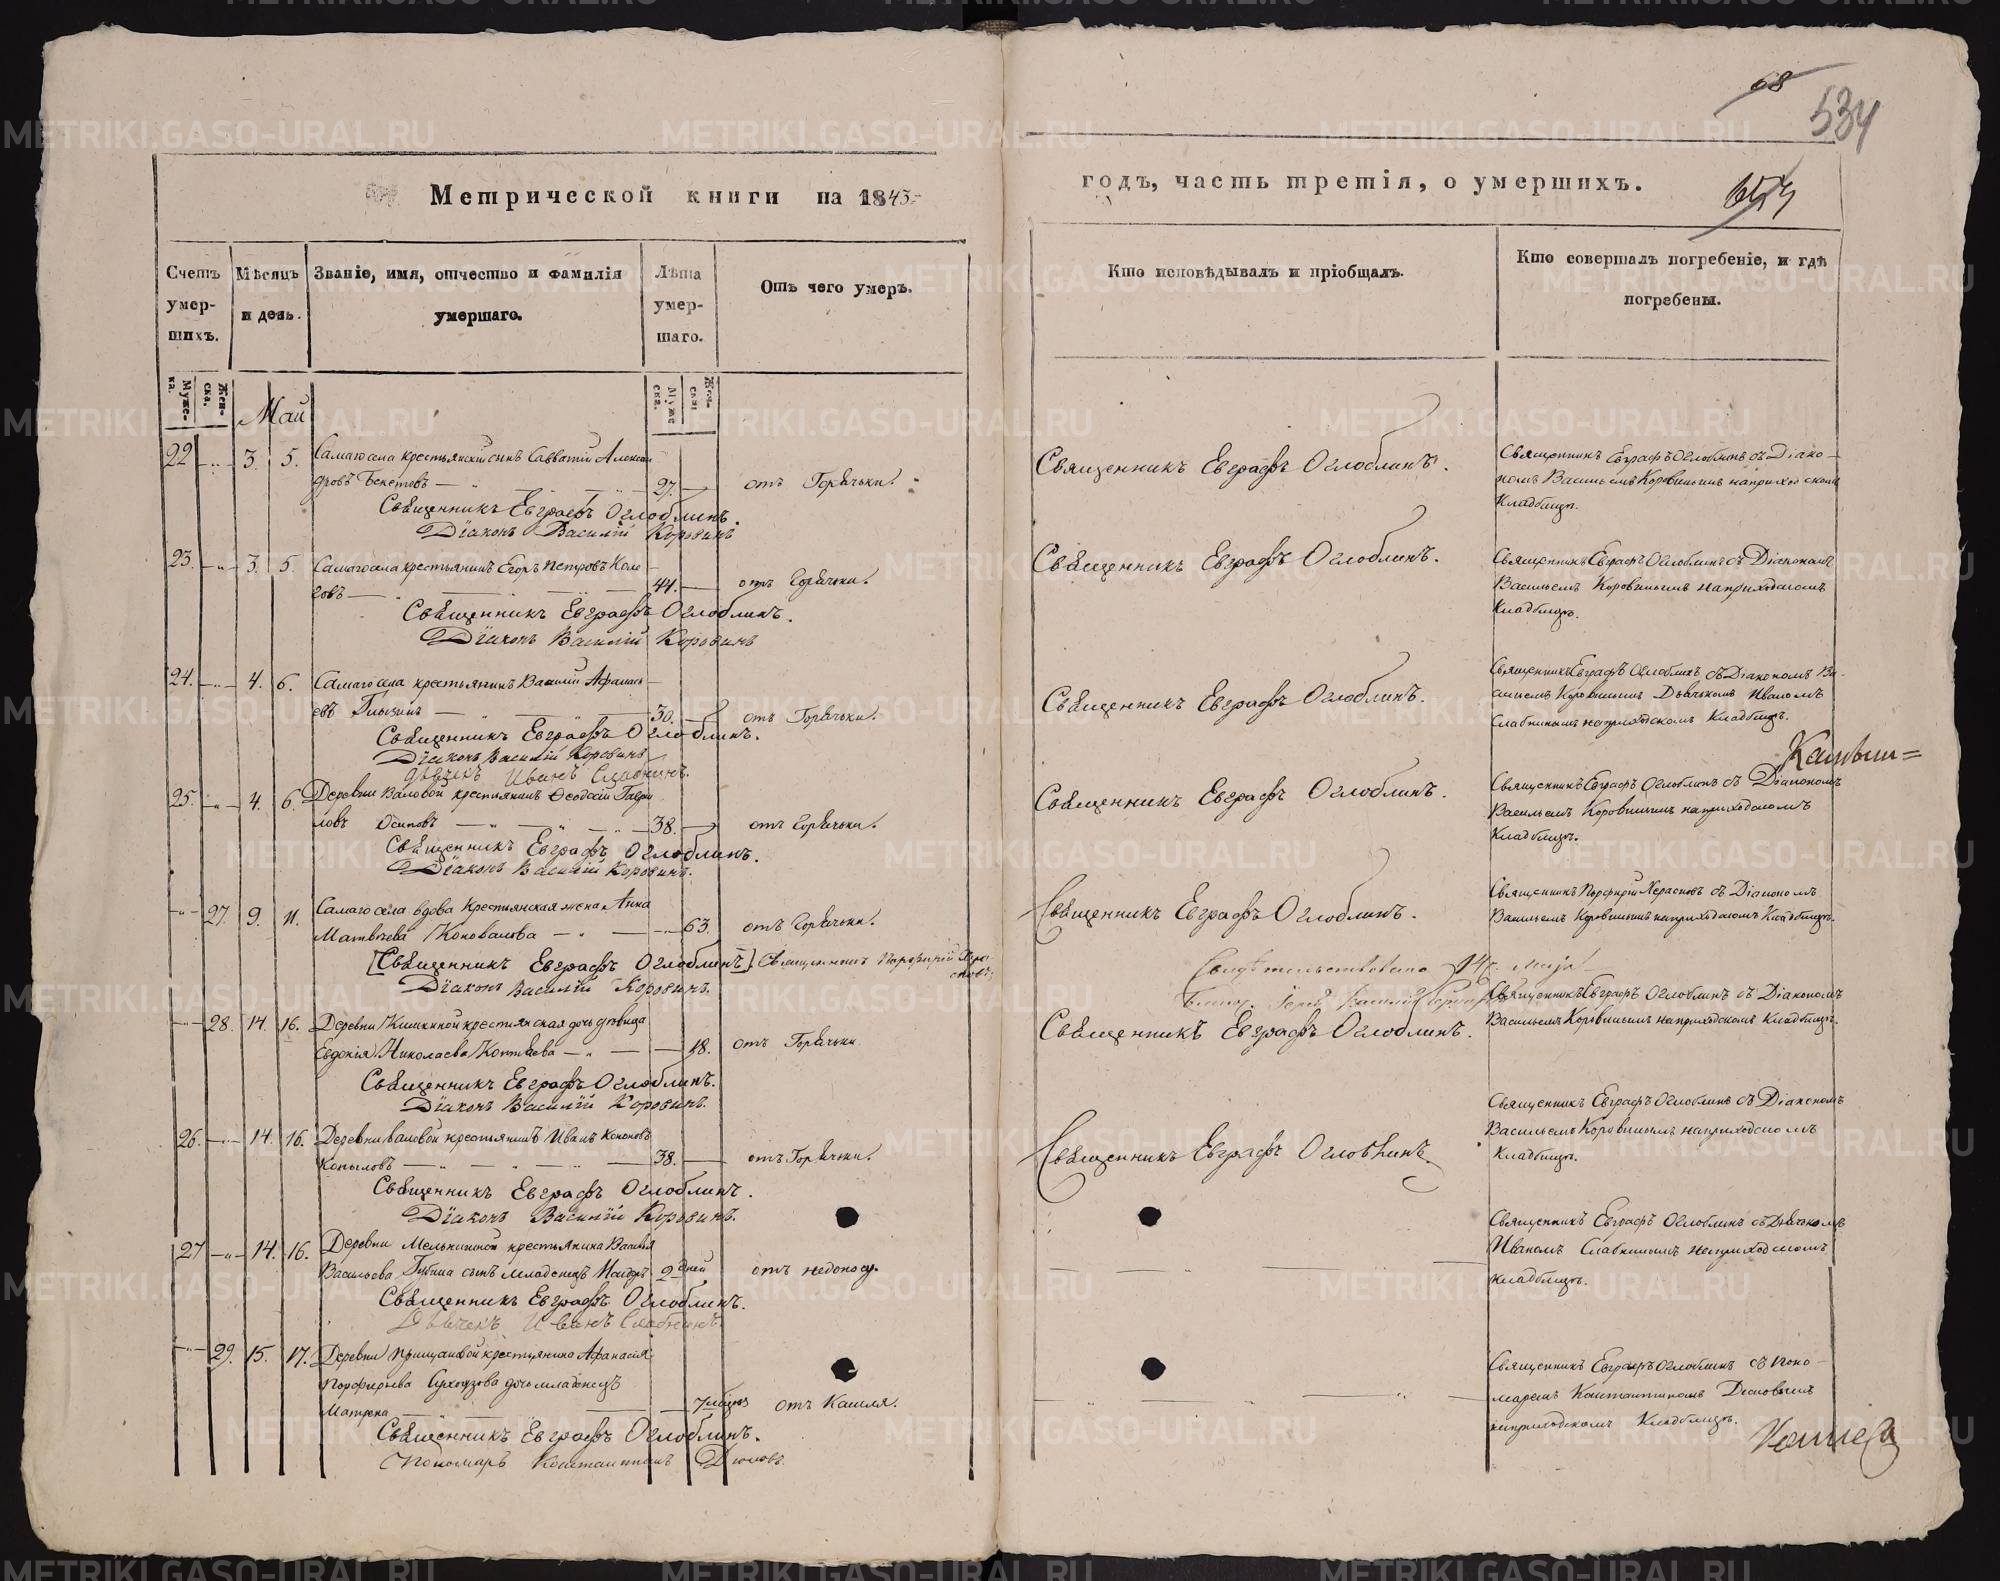 68
534
Метрической книги на 1843
годъ, часть третія, о умершихъ.
Счетъ умер-шихъ.
Мѣсяцъ и день.
Званіе, имя, отчество и фамилія умершаго.
Лѣта умер-шаго.
Отъ чего умеръ.
Кто исповѣдывалъ и пріобщалъ.
Кто совершалъ погребеніе, и гдѣ погребены.
Май
22 3. 5. Самаго села крестьянскій сынъ Савватій Алексан
дровъ Бекетовъ 27. отъ Горячьки.
Священникъ Евграфъ Оглоблинъ.
Діаконъ Василій Коровинъ
Священникъ Евграфъ Оглоблинъ.
Священникъ Евграфъ Оглоблинъ съ Діако-
номъ Васильемъ Коровинымъ на приходскомъ
Кладбищѣ.
23. 3. 5. Самаго села крестьянинъ Егоръ Петровъ
44. отъ Горячьки.
Священникъ Евграфъ Оглоблинъ.
Діаконъ Василій Коровинъ
Священникъ Евграфъ Оглоблинъ.
Священникъ Евграфъ Оглоблинъ съ Діакономъ
Васильемъ Коровинымъ на приходскомъ
Кладбищѣ.
24. 4. 6. Самаго села крестьянинъ Василій Афанась
евъ 30. отъ Горячьки.
Священникъ Евграфъ Оглоблинъ.
Діаконъ Василій Коровинъ
Дьячекъ Иванъ Слабнинъ.
Священникъ Евграфъ Оглоблинъ.
Священникъ Евграфъ Оглоблинъ съ Діакономъ Ва-
сильемъ Коровинымъ Дьячкомъ Иваномъ
Слабнинымъ на приходскомъ Кладбищѣ.
25. 4. 6. Деревни Валовой крестьянинъ Ѳеодосій Гаври
ловъ Осиповъ 38. отъ Горячьки.
Священникъ Евграфъ Оглоблинъ.
Діаконъ Василій Коровинъ.
Священникъ Евграфъ Оглоблинъ.
Священникъ Евграфъ Оглоблинъ съ Діакономъ
Васильемъ Коровинымъ на приходскомъ
Кладбищѣ.
27. 9. 11. Самаго села вдова Крестьянская жена Анна
Матвѣева Коновалова 63. отъ Горячьки.
[Священникъ Евграфъ Оглоблинъ]. Священникъ Порфирій
Діаконъ Василій Коровинъ.
Священникъ Евграфъ Оглоблинъ.
Священникъ Порфирій съ Діакономъ
Васильемъ Коровинымъ на приходскомъ Кладбищѣ.
Свидѣтельствовано 14 Маія
28. 14. 16. Деревни крестьянская дочь дѣвица
Евдокія Николаева Коптяева 18. отъ Горячьки
Священникъ Евграфъ Оглоблинъ.
Діаконъ Василій Коровинъ.
Священникъ Евграфъ Оглоблинъ.
Священникъ Евграфъ Оглоблинъ съ Діакономъ
Васильемъ Коровинымъ на приходскомъ Кладбищѣ.
26. 14. 16. Деревни Валовой крестьянинъ Иванъ Кононовъ
Копыловъ 38. отъ Горячьки.
Священникъ Евграфъ Оглоблинъ.
Діаконъ Василій Коровинъ.
Священникъ Евграфъ Оглоблинъ.
Священникъ Евграфъ Оглоблинъ съ Діакономъ
Васильемъ Коровинымъ на приходскомъ
Кладбищѣ.
27 14. 16. Деревни крестьянина Василья
Васильева Губина сынъ младенецъ 2 дней отъ недоносу.
Священникъ Евграфъ Оглоблинъ.
Дьячекъ Иванъ Слабнинъ.
Священникъ Евграфъ Оглоблинъ съ Дьячкомъ
Иваномъ Слабнинымъ на приходскомъ
кладбищѣ.
29. 15. 17. Деревни крестьянина Афанасія
Порфирьева дочь младенецъ
Матрена 7 мѣсяц отъ Кашля.
Священникъ Евграфъ Оглоблинъ.
Пономарь Константинъ
Священникъ Евграфъ Оглоблинъ съ Поно-
маремъ Константиномъ
на приходскомъ Кладбищѣ.
METRIKI.GASO-URAL.RU